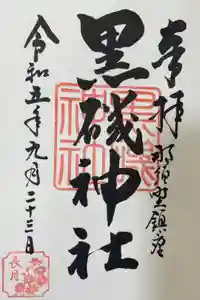 奉拝
那須野鎮座
黒磯神社
令和五年九月二十三日
長月